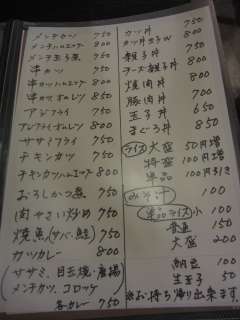 メンチカツ 750
メンチハムエッグ 800
メンチ玉子煮 750
串カツ 750
串カツハムエッグ 800
串カツオムレツ 850
アジフライ 750
アジフライオムレツ 850
ササミフライ 750
チキンカツ 750
チキンカツハムエッグ 800
おろしかつ煮 750
肉やさい炒め 750
焼魚(サバ・鮭) 750
カツカレー 800
(ササミ、目玉焼・唐揚
メンチカツ、コロッケ)
各カレー 750
カツ丼 750
カツ玉子W 800
親子丼 750
チーズ親子丼 800
焼肉丼 800
豚肉丼 700
玉子丼 650
まぐろ丼 850
ライス大盛 50円増
特盛 100円増
単品 100円引き
みそ汁 100
単品ライス小 100
普通 150
大盛 200
納豆 100
生玉子 50
※お持ち帰り出来ます。